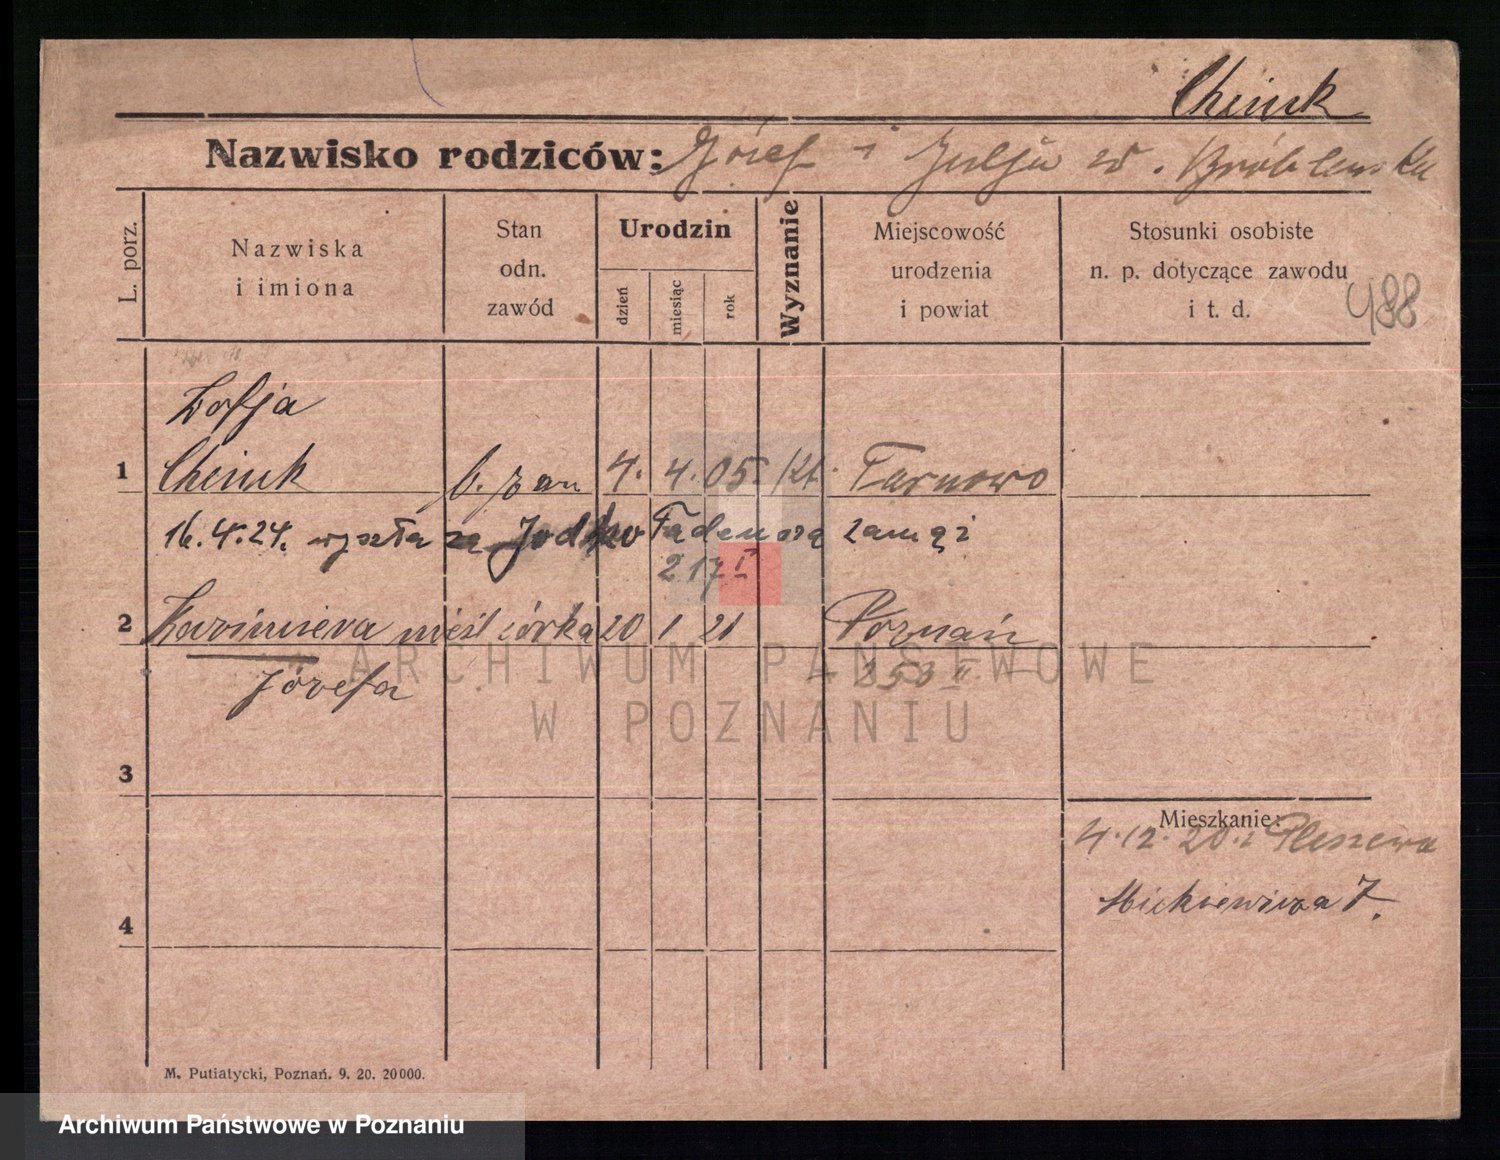 Nazwisko rodziców: Józef i Julja
L. porz.
Nazwiska
i imiona
Stan
odn.
zawód
Urodzin
dzień
miesiąc
rok
Wyznanie
Miejscowość
urodzenia
i powiat
Stosunki osobiste
n. p. dotyczące zawodu
i t. d.
488
Zofja
1 4. 4. 05. Kt. Tarnowo
16.4.24. wyszła za Jodko Tadeusza zamąż
217 I
2 Kazimiera nieśl córka 20 1 21 Poznań
Józefa
3
Mieszkanie:
4.12.20. z Pleszewa
Mickiewicza 7.
4
M. Putiatycki, Poznań. 9. 20. 20000.
ARCHIWUM PAŃSTWOWE
W POZNANIU
Archiwum Państwowe w Poznaniu